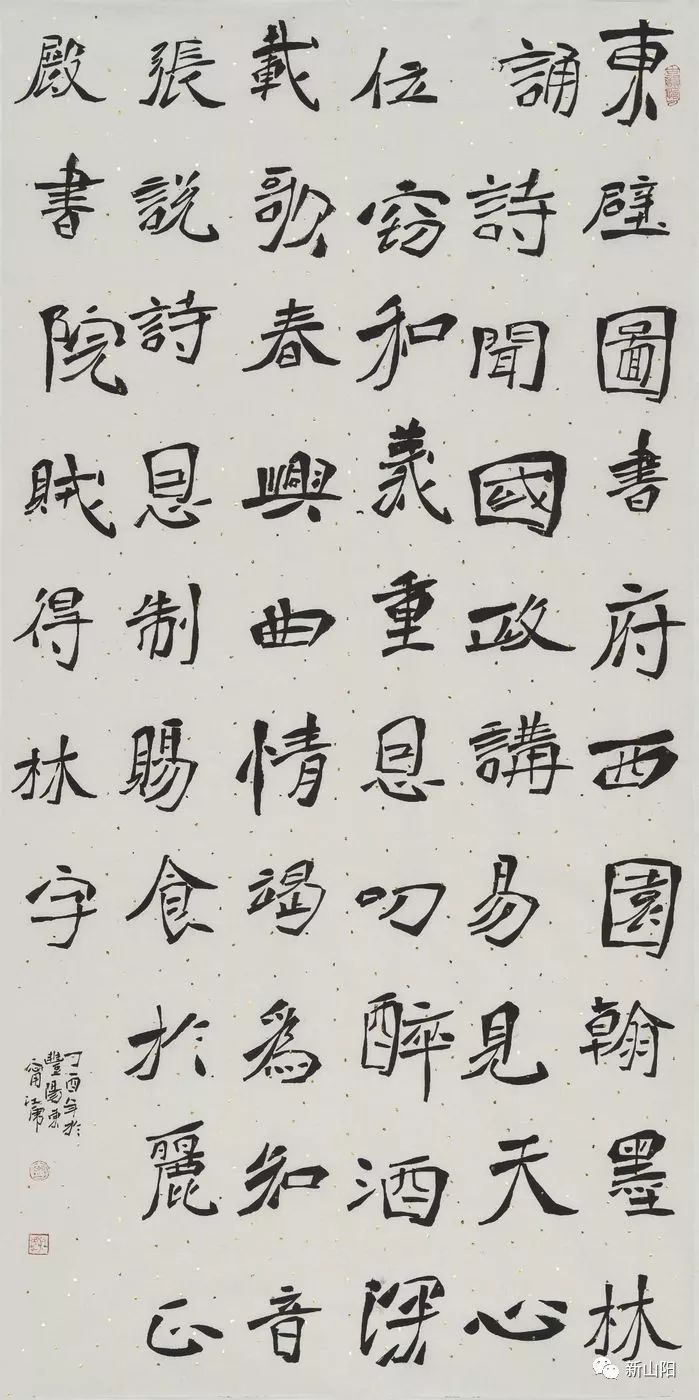 東壁圖書府西園翰墨林
誦詩聞國政講易見天心
位竊和義重恩叨醉酒深
載歌春興曲情竭爲知音
張説詩恩制賜食於麗正
殿書院賦得林字
丁酉年於
豐陽東
新山阳